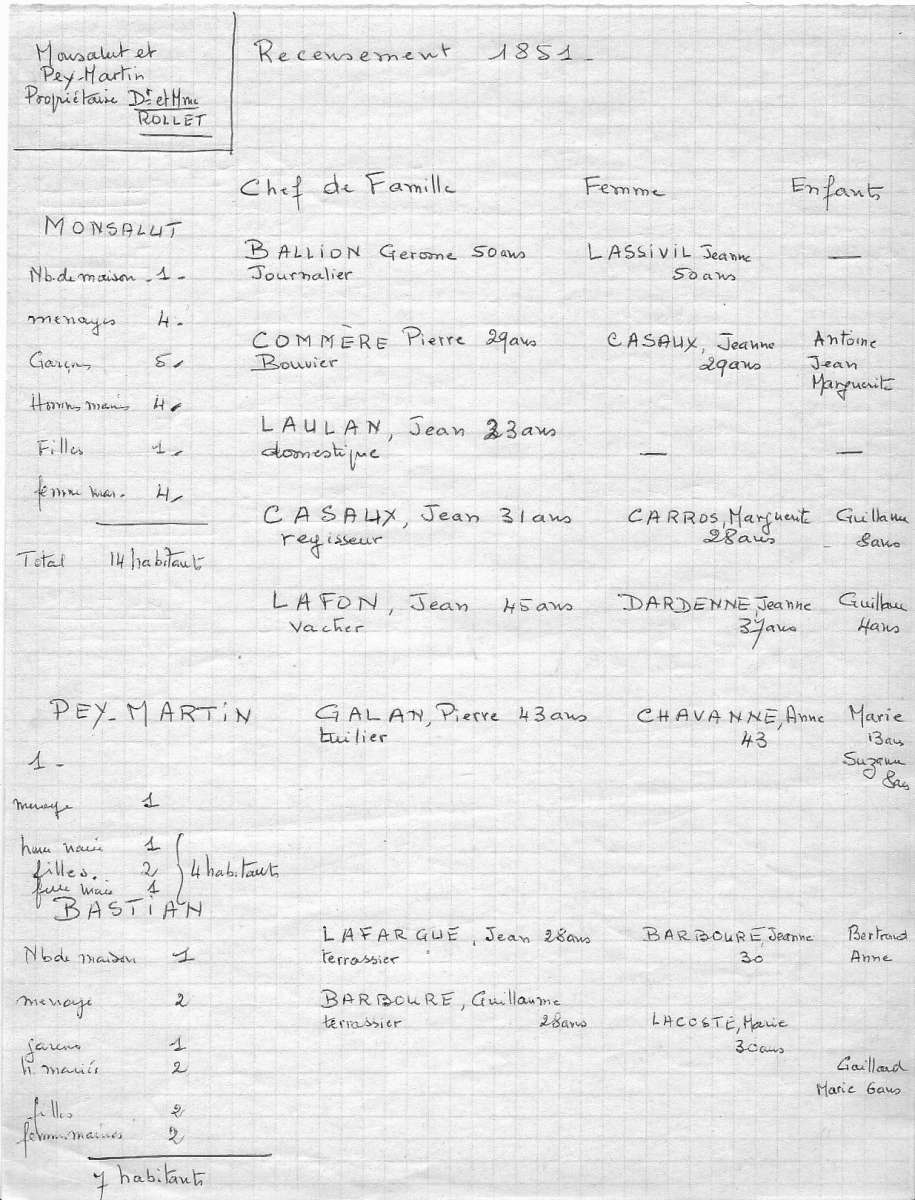 Monsalut et
Pey-Martin
Propriétaire Dr et Mme
ROLLET
Recensement 1851-
Chef de Famille Femme Enfants
MONSALUT
BALLION Gerome 50ans LASSIVIL Jeanne —
Journalier 50ans
Nb.de maison - 1 -
menages 4-
COMMÈRE Pierre 29ans CASAUX, Jeanne Antoine
Bouvier 29ans Jean
Marguerite
Garçons 5
Hommes mariés 4
LAULAN, Jean 23ans
domestique — —
Filles 1
femme mar. 4
CASAUX, Jean 31ans CARROS, Marguerite Guillaume
regisseur 28ans 8ans
Total 14 habitants
LAFON, Jean 45ans DARDENNE, Jeanne Guillaume
vacher 37ans 4ans
PEY-MARTIN GALAN, Pierre 43ans CHAVANNE, Anne Marie
tuilier 43 13ans
1 - Suzanne
8ans
menage 1
homme marié 1
filles. 2 4 habitants
femme mariée 1
BASTIAN
LAFARGUE, Jean 28ans BARBOURE, Jeanne Bertrand
Nb de maison 1 terrassier 30 Anne
menage 2 BARBOURE, Guillaume
terrassier 28ans LACOSTE, Marie
30ans
garcons 1
h. mariés 2 Gaillard
Marie 6ans
filles 2
femmes mariées 2
7 habitants